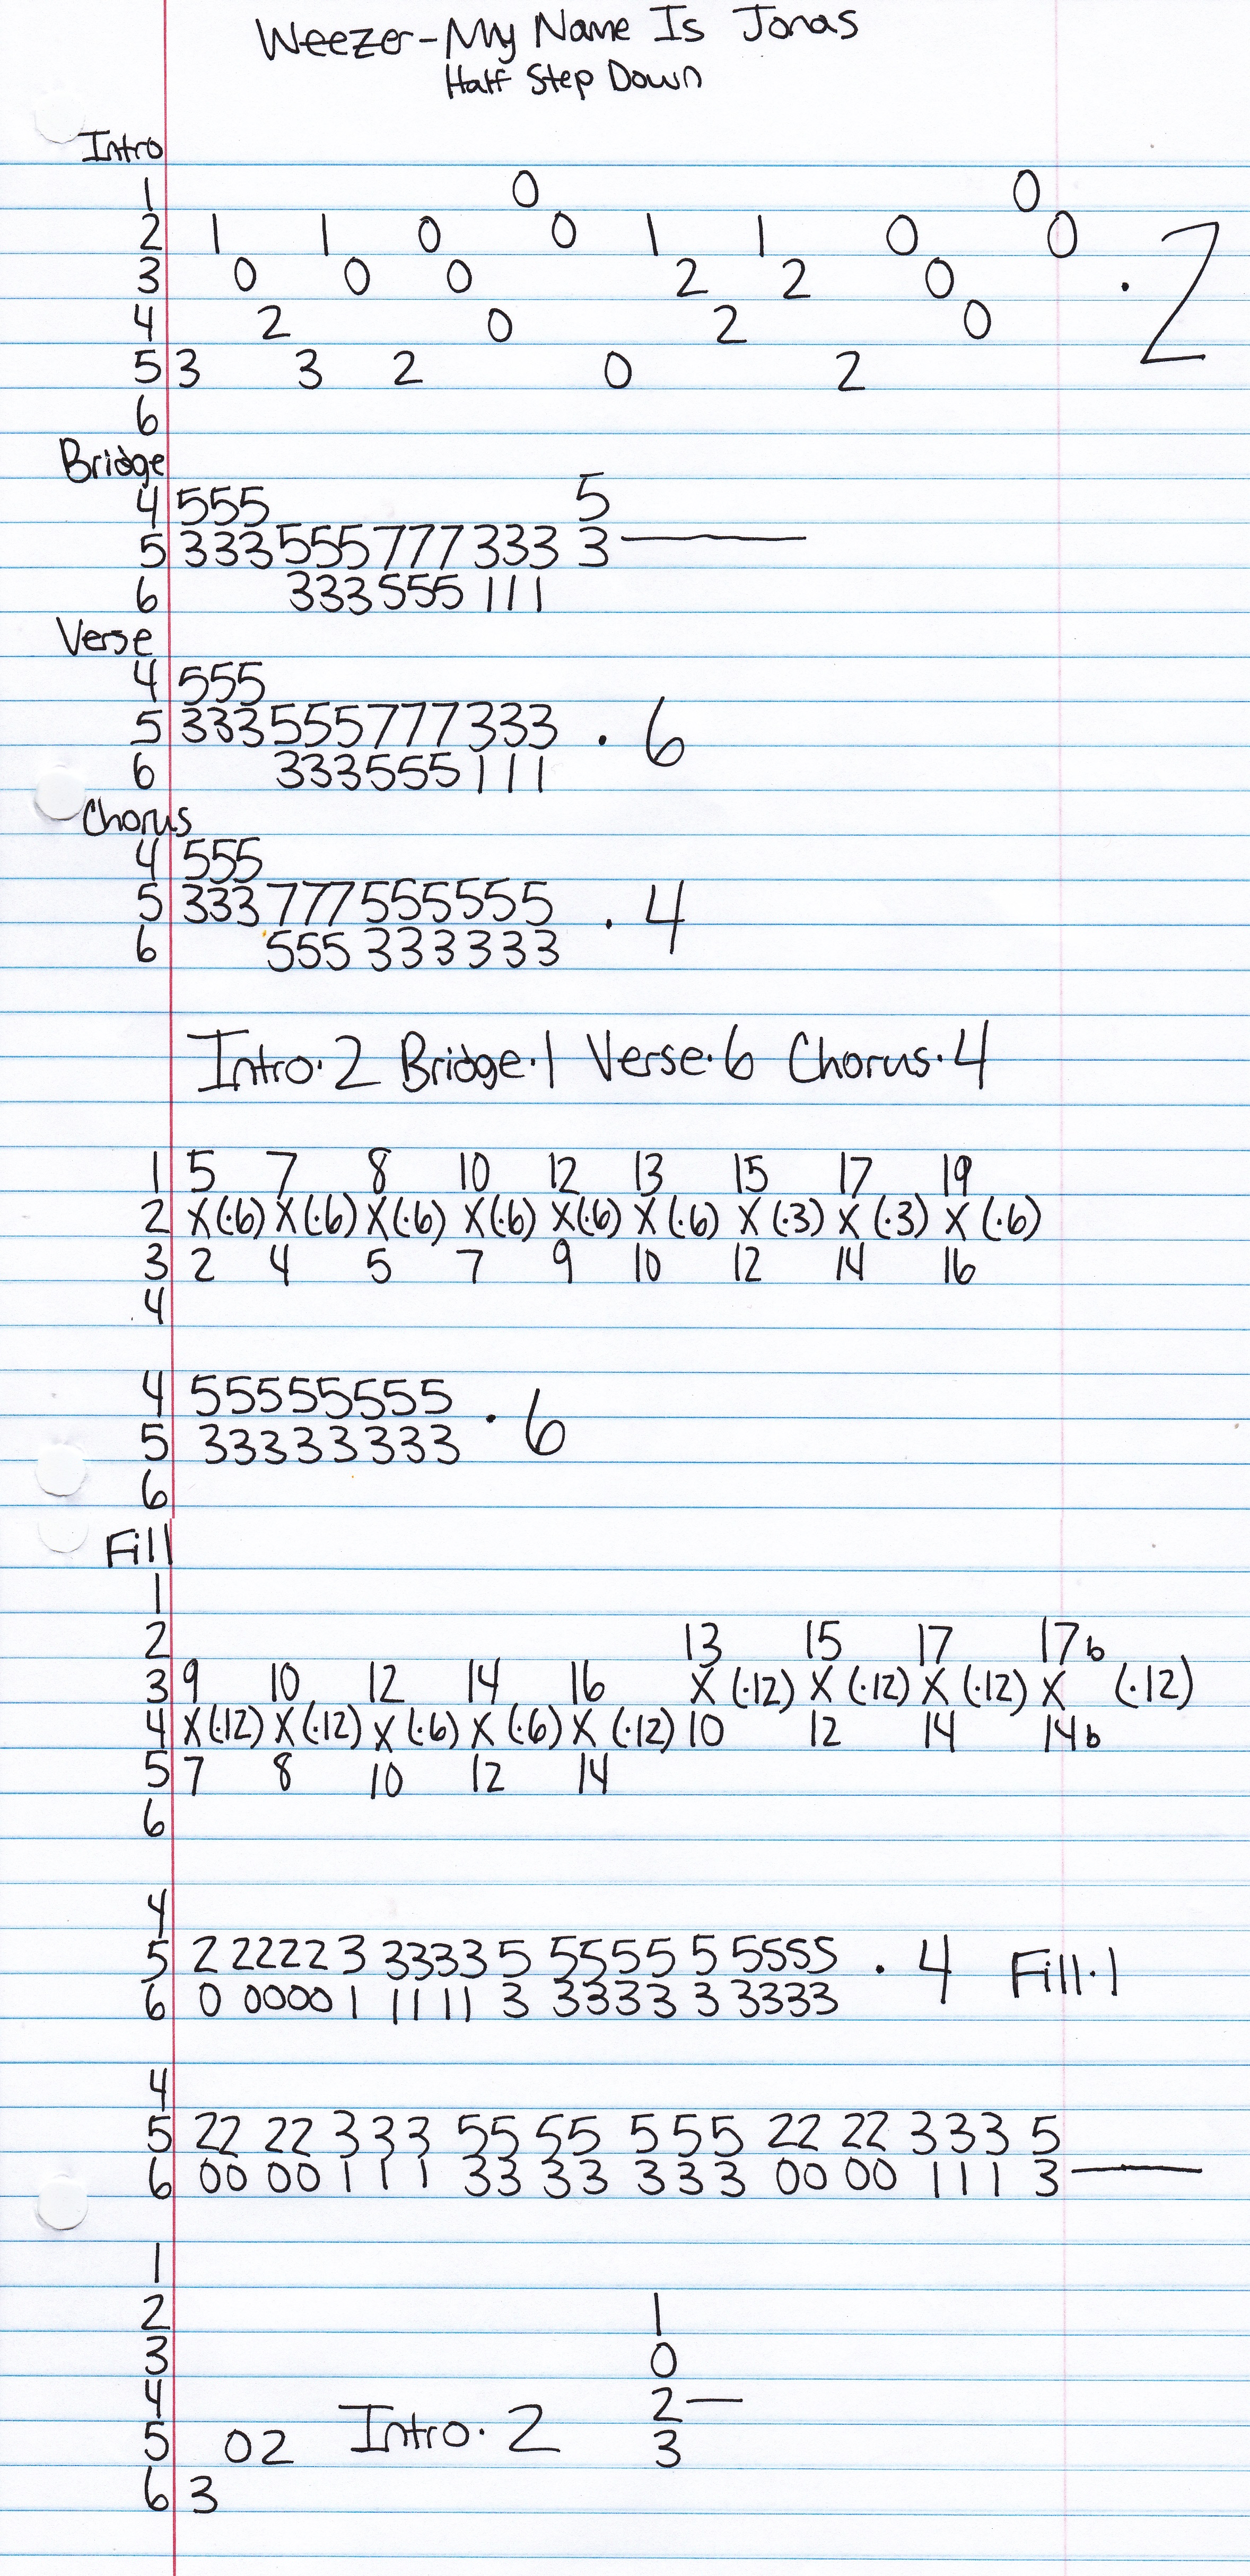 Weezer-My Name Is Jonas
Half Step Down
Intro
1 0 0
2 1 1 0 0 1 1 0 0
3 0 0 0 2 2 0 . 2
4 2 0 2 0
5 3 3 2 0 2
6
Bridge
4 555 5
5 333 555 777 333 3
6 333 555 111
Verse
4 555
5 333 555 777 333 . 6
6 333 555 111
Chorus
4 555
5 333 777 555555 . 4
6 555 333333
Intro·2 Bridge·1 Verse·6 Chorus·4
1 5 7 8 10 12 13 15 17 19
2 X(·6) X(·6) X(·6) X(·6) X(·6) X(·6) X(·3) X(·3) X(·6)
3 2 4 5 7 9 10 12 14 16
4
4 555555555 · 6
5 333333333
6
Fill
1
2 13 15 17 17b
3 9 10 12 14 16 X(·12) X(·12) X(·12) X (·12)
4 X(·12) X(·12) X(·6) X(·6) X(·12) 10 12 14 14b
5 7 8 10 12 14
6
4
5 2 2222 3 3333 5 5555 5 5555 . 4 Fill·1
6 0 0000 1 1111 3 3333 3 3333
4
5 22 22 3 3 3 55 55 5 5 5 22 22 3 3 3 5
6 00 00 1 1 1 33 33 3 3 3 00 00 1 1 1 3
1
2 1
3 0
4 2
5 02 Intro·2 3
6 3